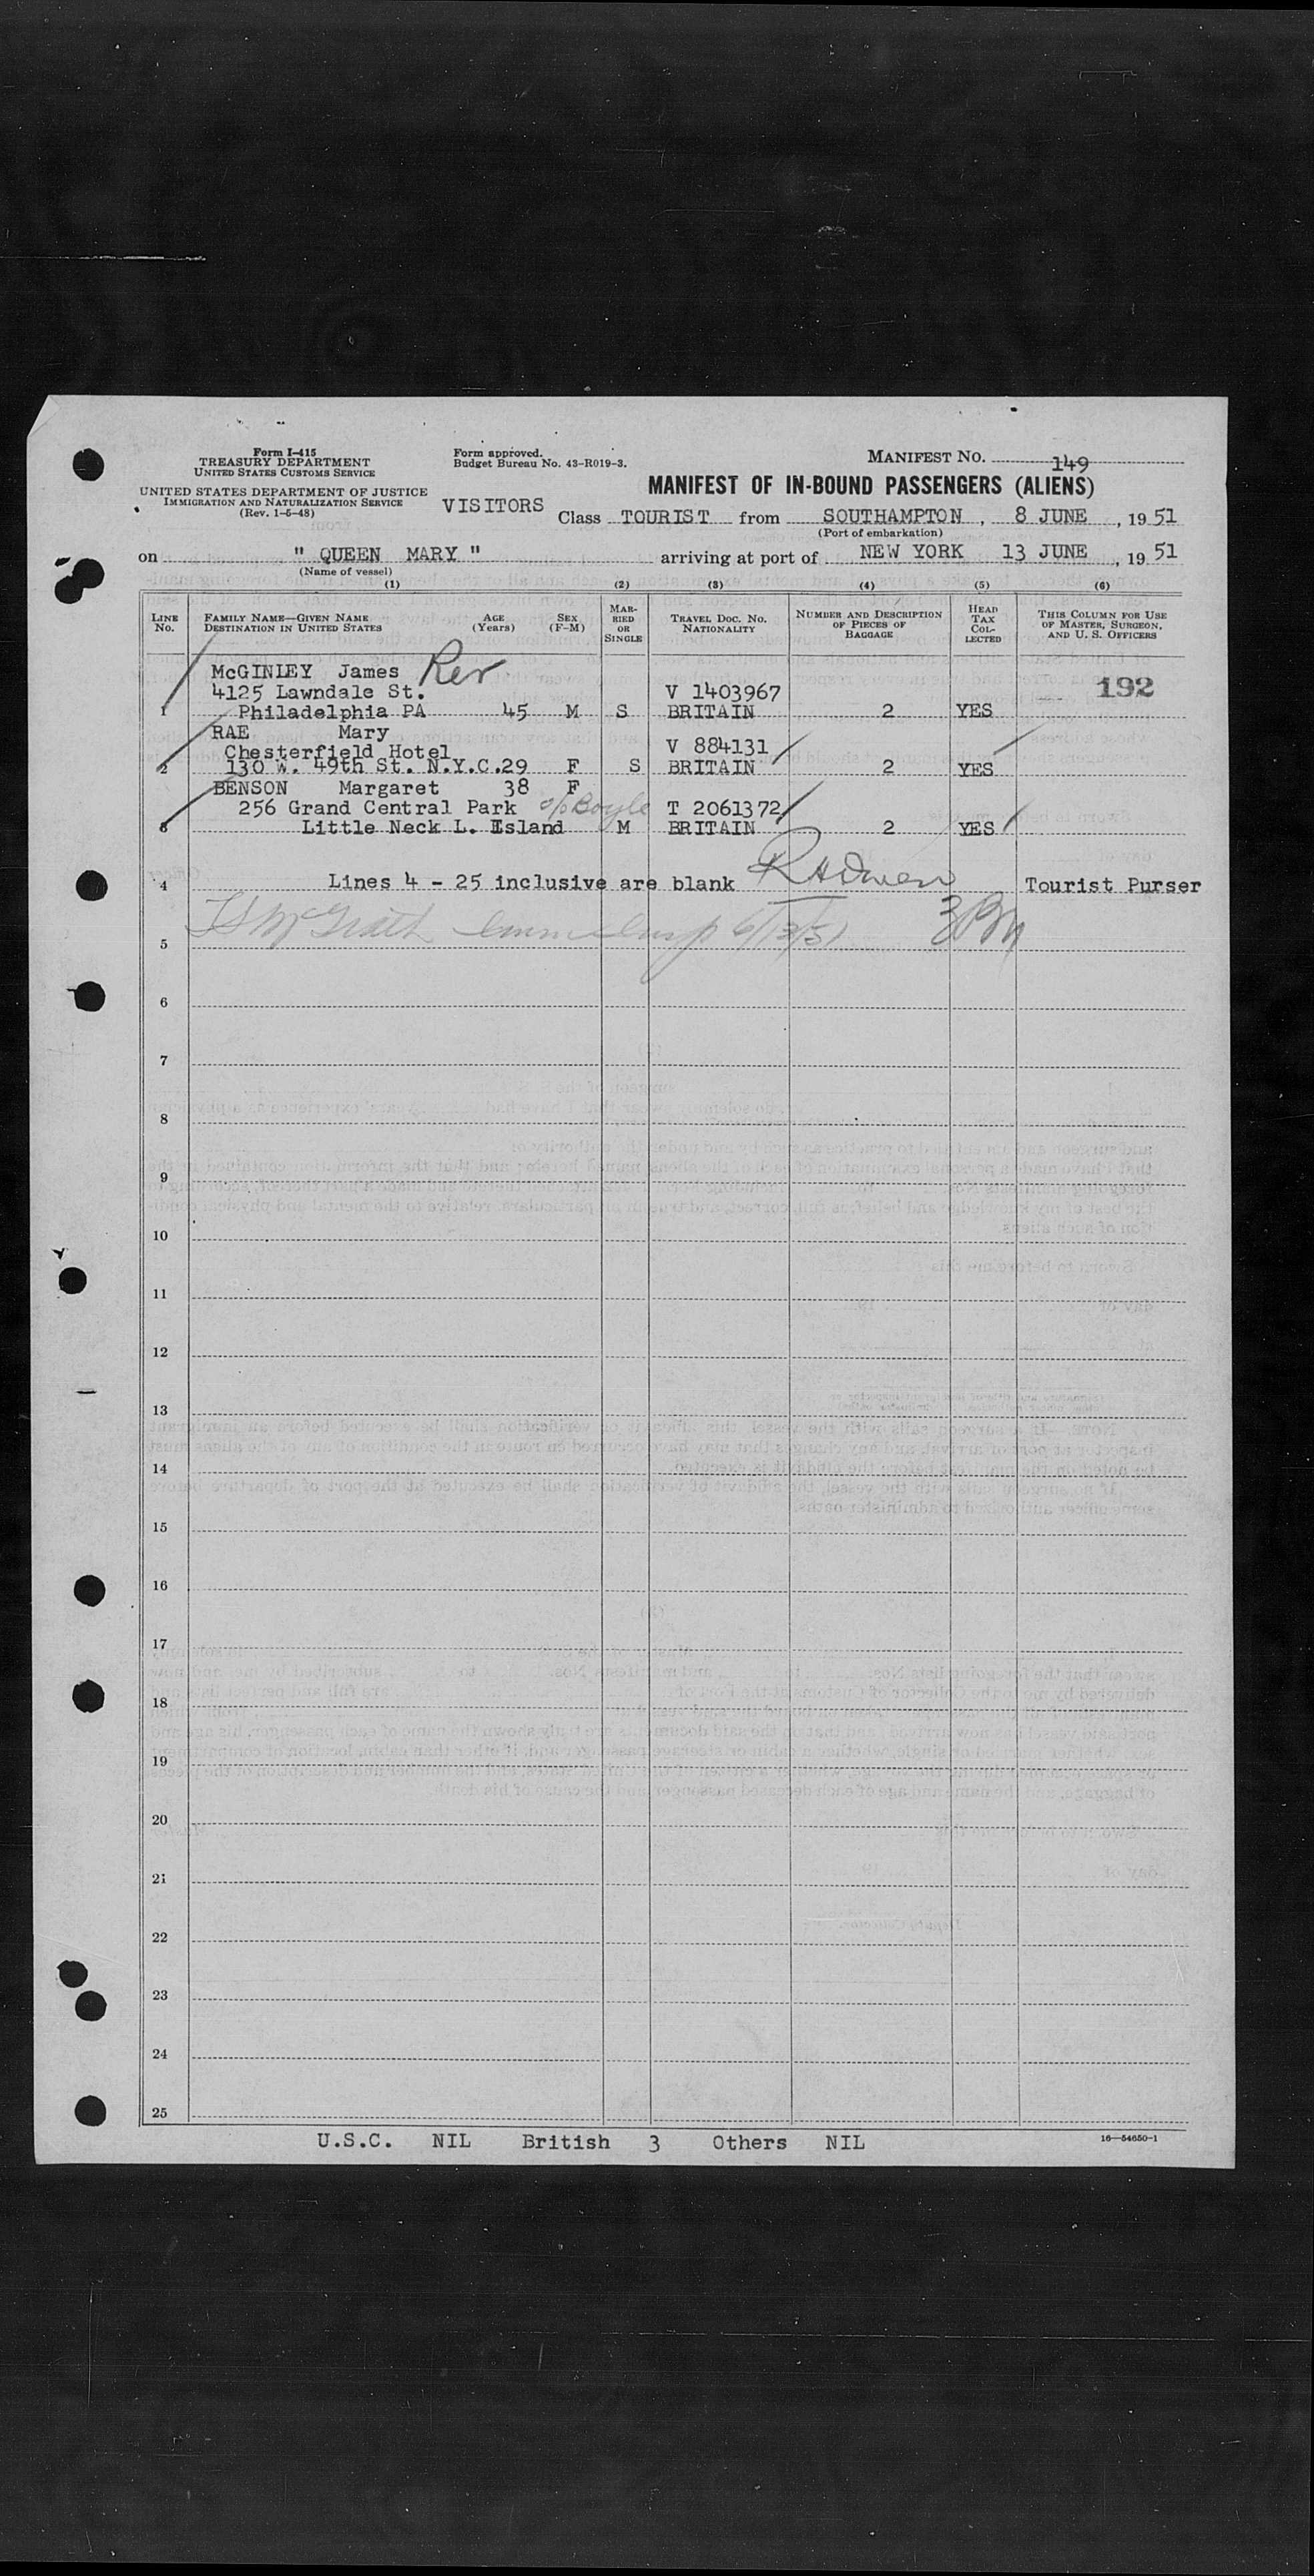 Form I-415
TREASURY DEPARTMENT
UNITED STATES CUSTOMS SERVICE
UNITED STATES DEPARTMENT OF JUSTICE
IMMIGRATION AND NATURALIZATION SERVICE
(Rev. 1-5-48)
Form approved.
Budget Bureau No. 43-R019-3.
MANIFEST NO. 149
MANIFEST OF IN-BOUND PASSENGERS (ALIENS)
VISITORS Class TOURIST from SOUTHAMPTON, 8 JUNE, 19 51
(Port of embarkation)
on " QUEEN MARY " arriving at port of NEW YORK 13 JUNE, 19 51
(Name of vessel)
(1) (2) (3) (4) (5) (6)
LINE NO. FAMILY NAME—GIVEN NAME DESTINATION IN UNITED STATES AGE (Years) SEX (F-M) MARRIED OR SINGLE TRAVEL DOC. NO. NATIONALITY NUMBER AND DESCRIPTION OF PIECES OF BAGGAGE HEAD TAX COLLECTED THIS COLUMN FOR USE OF MASTER, SURGEON, AND U. S. OFFICERS
McGINLEY James Rev
4125 Lawndale St. V 1403967 192
1 Philadelphia PA 45 M S BRITAIN 2 YES
RAE Mary
Chesterfield Hotel V 884131
2 130 W. 49th St. N.Y.C. 29 F S BRITAIN 2 YES
BENSON Margaret 38 F
256 Grand Central Park c/o Boyle T 2061372
3 Little Neck L. Esland M BRITAIN 2 YES
4 Lines 4 - 25 inclusive are blank Tourist Purser
5 McGrath 6/13/51
6
7
8
9
10
11
12
13
14
15
16
17
18
19
20
21
22
23
24
25
U.S.C. NIL British 3 Others NIL
16—54650-1